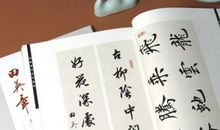 飛龍
乘雲
騰蛇
古柳陰中
好花深處
田英章